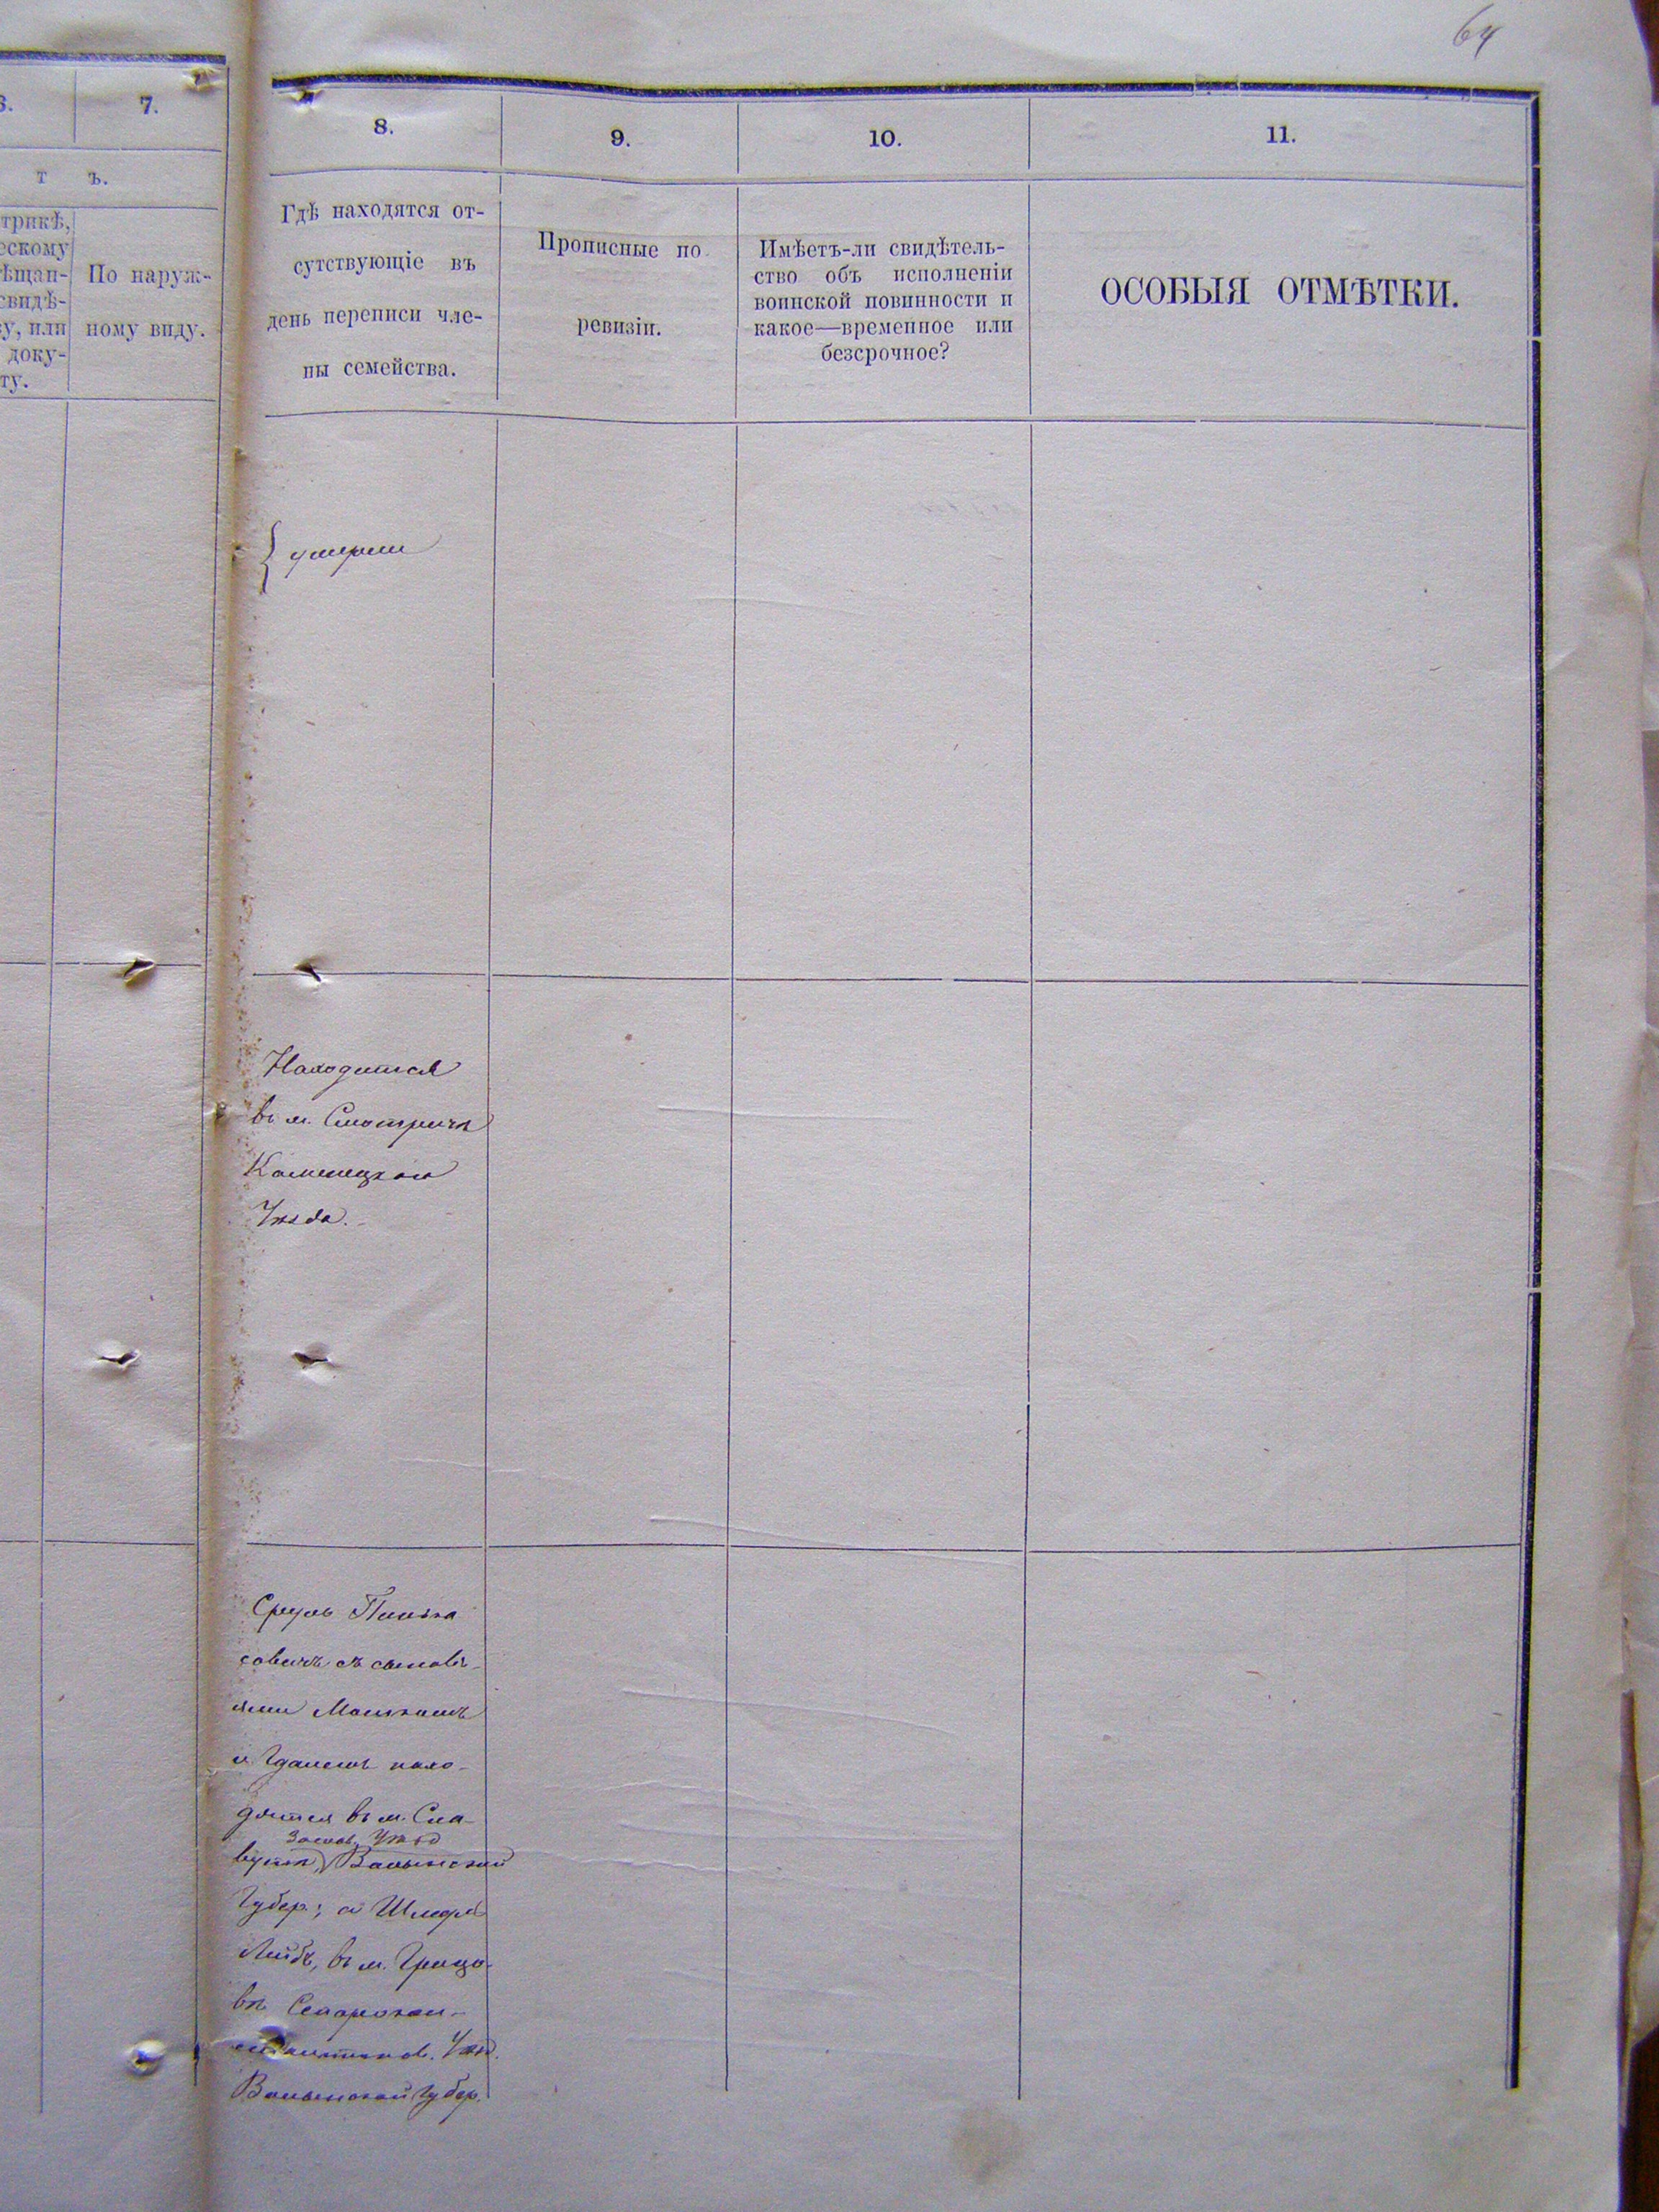 64
6.
7.
т ъ.
трикѣ,
ескому
ѣщан-
свидѣ-
у, или
доку-
ту.
По наруж-
ному виду.
8.
9.
10.
11.
Гдѣ находятся от-
сутствующіе въ
день переписи чле-
ны семейства.
Прописные по
ревизіи.
Имѣетъ-ли свидѣтель-
ство объ исполненіи
воинской повинности и
какое—временное или
безсрочное?
ОСОБЫЯ ОТМѢТКИ.
умерли
Находится
въ м. Смотричѣ
Каменецкаго
Уѣзда.
Сруль Пинька
совичъ съ сыновь-
ями Мошкомъ
и нахо-
дятся въ м. Сла-
Заслав. Уѣзд
вутѣ, Волынской
Губер.; а Шмерл
Лейбъ, въ м. Грицо-
вѣ Старокон-
стантинов. Уѣзд.
Волынской Губер.